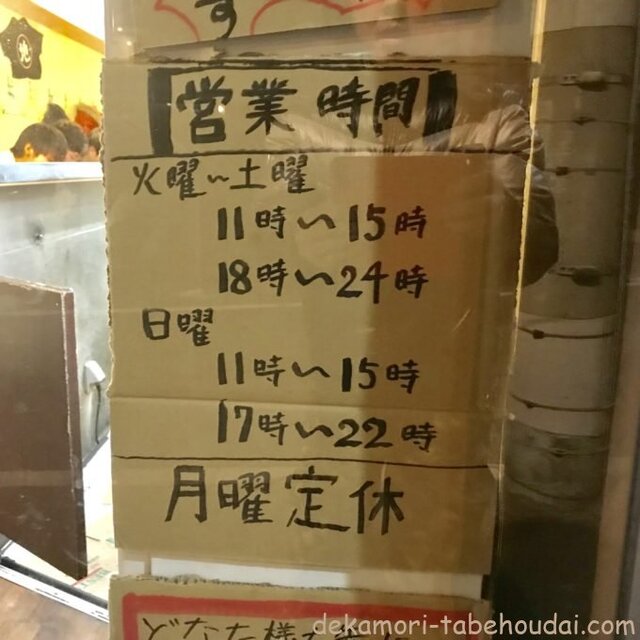 す
営業時間
火曜〜土曜
11時〜15時
18時〜24時
日曜
11時〜15時
17時〜22時
月曜定休
どなた様も
dekamori-tabehoudai.com